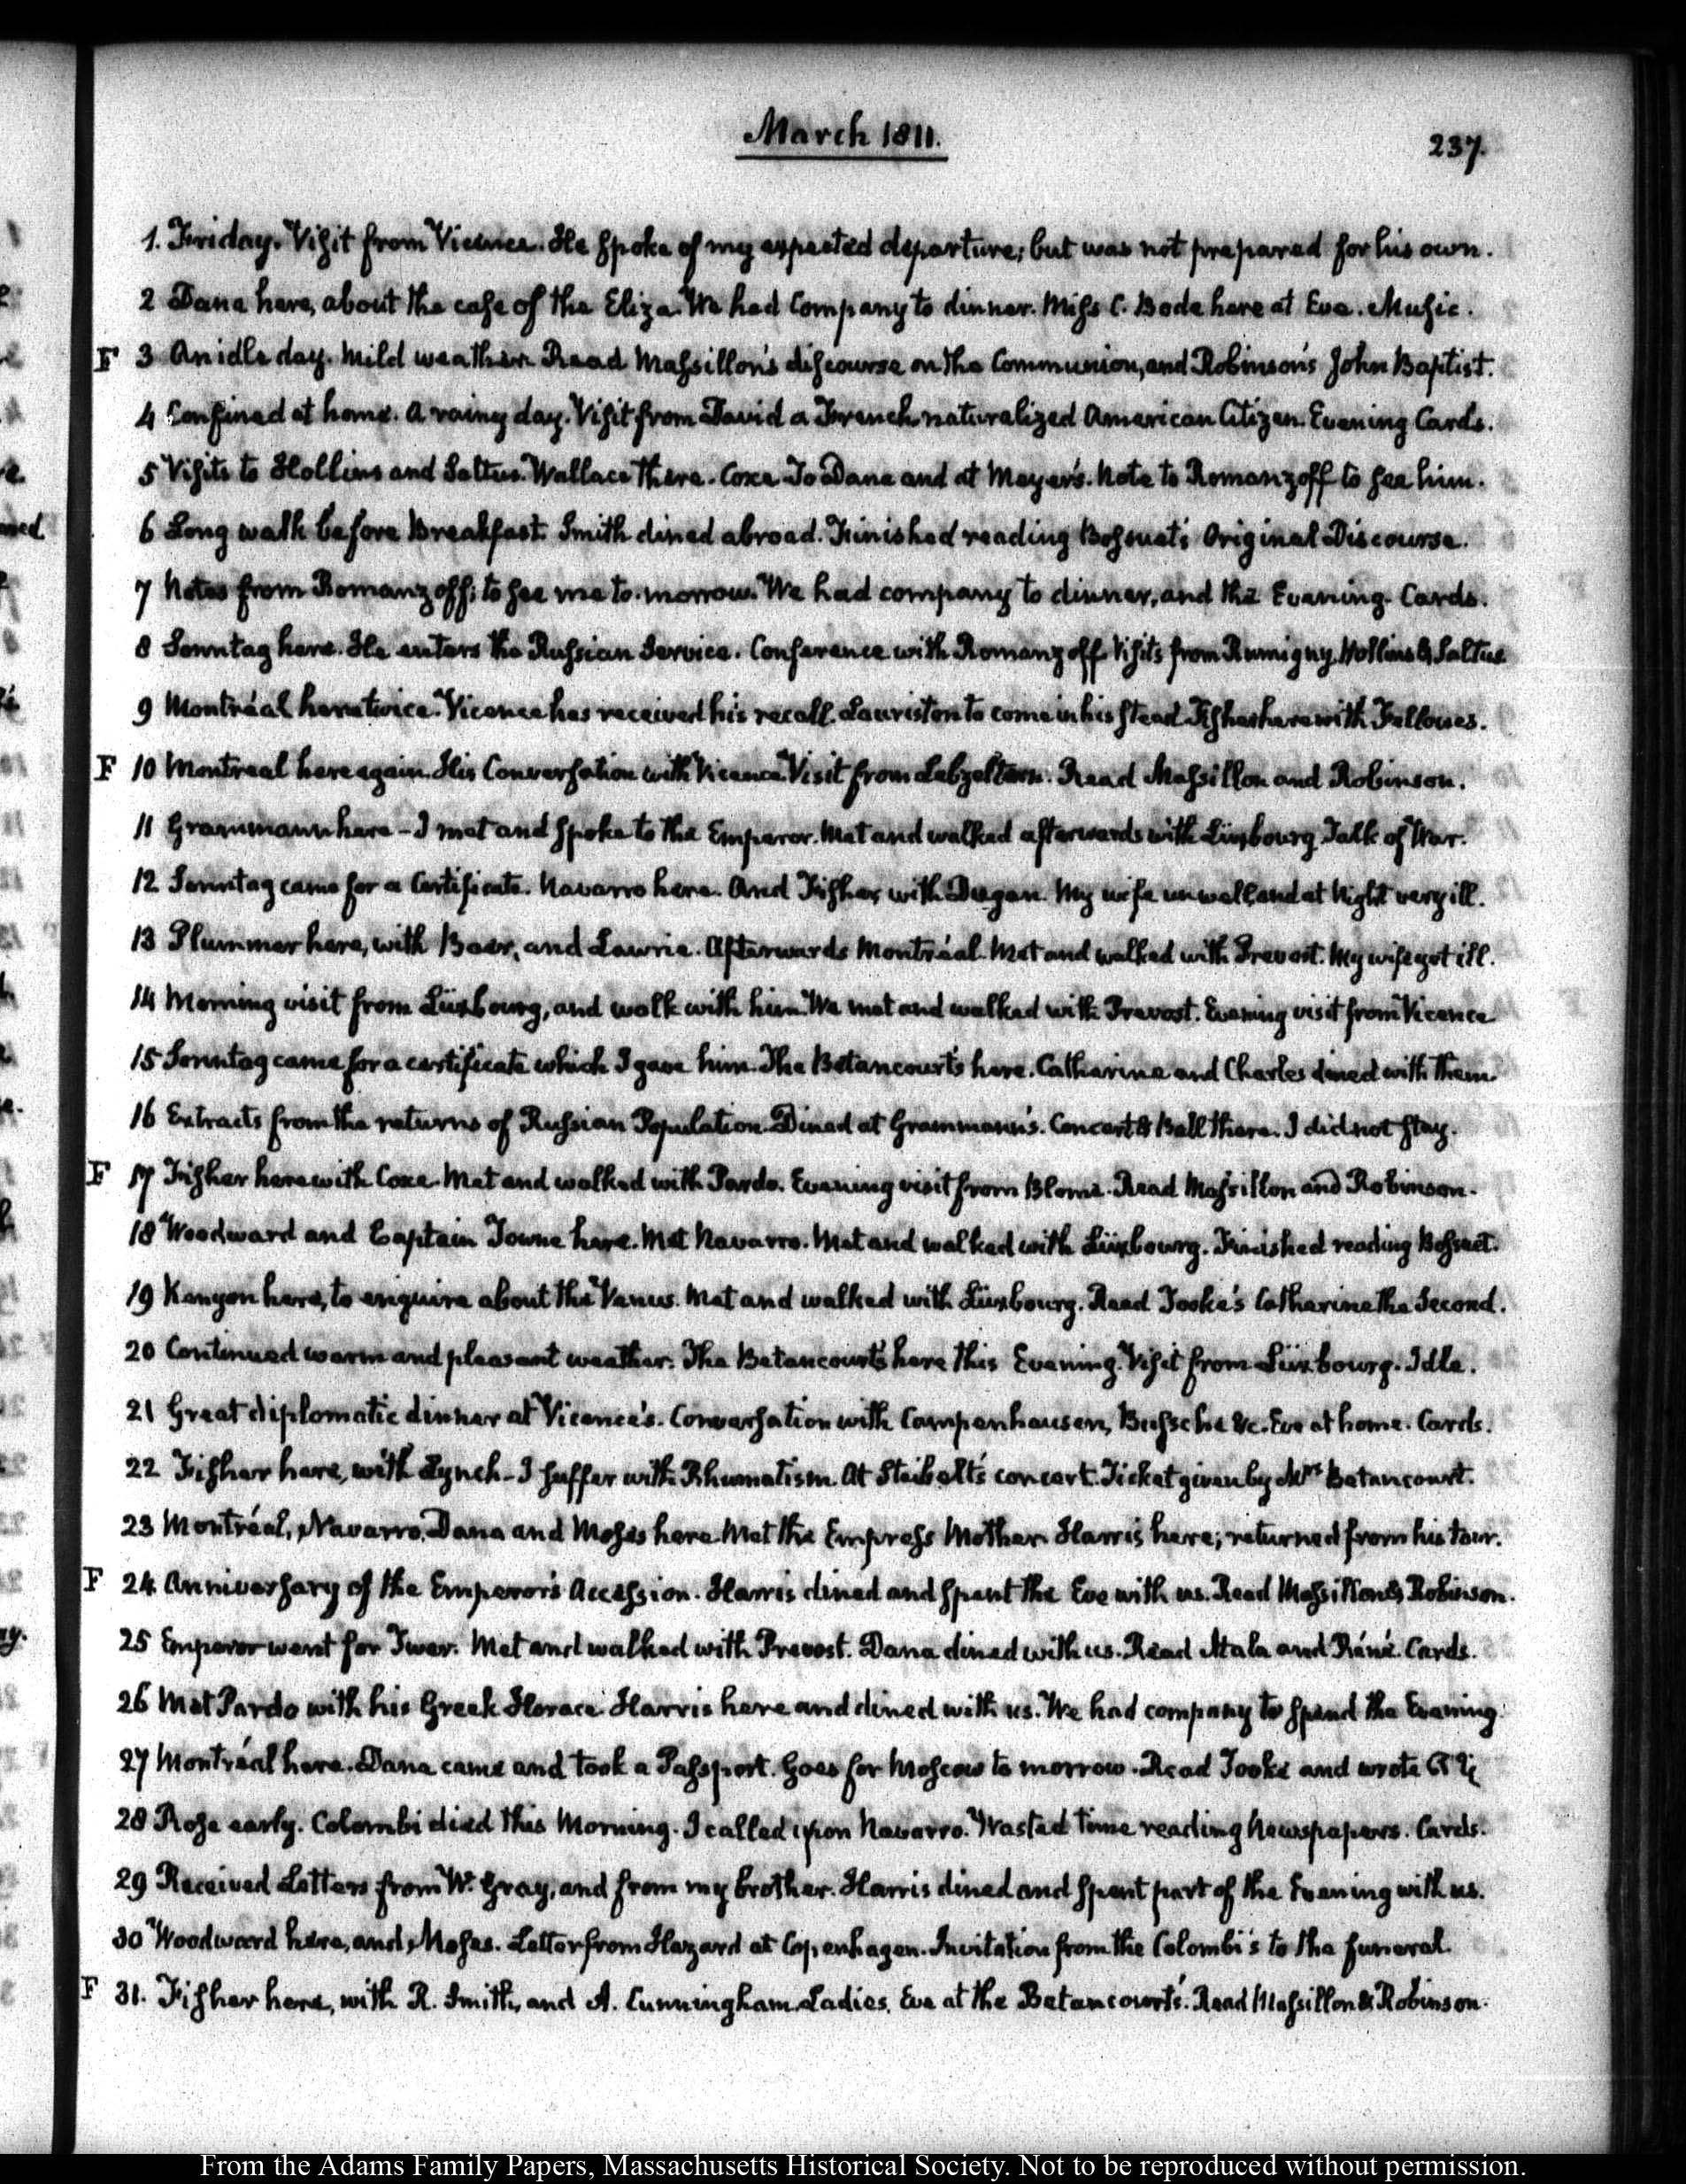 March 1811.
237.
1. Friday. Visit from Vicence. He spoke of my expected departure; but was not prepared for his own.
2 Dana here, about the case of the Eliza. We had Company to dinner. Miss C. Bode here at Eve. Music.
F 3 An idle day. Mild weather. Read Massillon's discourse on the Communion, and Robinson's John Baptist.
4 Confined at home. A rainy day. Visit from David a French naturalized American Citizen. Evening Cards.
5 Visits to Hollins and Saltus. Wallace there. Coxe. To Dana and at Meyer's. Note to Romanzoff to see him.
6 Long walk before Breakfast. Smith dined abroad. Finished reading Bossuet's Original Discourse.
7 Notes from Romanzoff; to see me to-morrow. We had company to dinner, and the Evening. Cards.
8 Sonntag here. He enters the Russian Service. Conference with Romanzoff. Visits from Rumigny, Hollins & Saltus
9 Montréal here twice. Vicence has received his recall. Lauriston to come in his stead. Fisher here with Fellowes.
F 10 Montreal here again. His Conversation with Vicence. Visit from Lebzeltern. Read Massillon and Robinson.
11 Grammann here - I met and spoke to the Emperor. Met and walked afterwards with Lüxbourg. Talk of War.
12 Sonntag came for a Certificate. Navarro here. And Fisher, with Dugan. My wife unwell, and at Night very ill.
13 Plummer here, with Baer, and Lawrie. Afterwards Montréal. Met and walked with Prevost. My wife yet ill.
14 Morning visit from Lüxbourg, and walk with him. We met and walked with Prevost. Evening visit from Vicence
15 Sonntag came for a certificate which I gave him. The Betancourt's here. Catharine and Charles dined with them.
16 Extracts from the returns of Russian Population. Dined at Grammann's. Concert & Ball there. I did not stay.
F 17 Fisher here with Coxe. Met and walked with Pardo. Evening visit from Blome. Read Massillon and Robinson.
18 Woodward and Captain Towne here. Met Navarro. Met and walked with Lüxbourg. Finished reading Bossuet.
19 Kenyon here, to enquire about the Venus. Met and walked with Lüxbourg. Read Tooke's Catharine the Second.
20 Continued warm and pleasant weather. The Betancourt's here this Evening. Visit from Lüxbourg. Idle.
21 Great diplomatic dinner at Vicence's. Conversation with Campenhausen, Bussche &c. Eve at home. Cards.
22 Fisher here, with Lynch - I suffer with Rhumatism. At Steibelt's concert. Ticket given by Mrs Betancourt.
23 Montréal, Navarro, Dana and Moses here. Met the Empress Mother. Harris here; returned from his tour.
F 24 Anniversary of the Emperor's Accession. Harris dined and spent the Eve with us. Read Massillon & Robinson.
25 Emperor went for Twer. Met and walked with Prevost. Dana dined with us. Read Atala and Réné. Cards.
26 Met Pardo with his Greek Horace. Harris here and dined with us. We had company to spend the Evening.
27 Montréal here. Dana came and took a Passport. Goes for Moscow to morrow. Read Tooke and wrote
28 Rose early. Colombi died this Morning. I called upon Navarro. Wasted time reading Newspapers. Cards.
29 Received Letters from W. Gray, and from my brother. Harris dined and spent part of the Evening with us.
30 Woodward here, and Moses. Letter from Hazard at Copenhagen. Invitation from the Colombi's to the funeral.
F 31. Fisher here, with R. Smith, and A. Cunningham. Ladies, Eve at the Betancourts'. Read Massillon & Robinson.
From the Adams Family Papers, Massachusetts Historical Society. Not to be reproduced without permission.